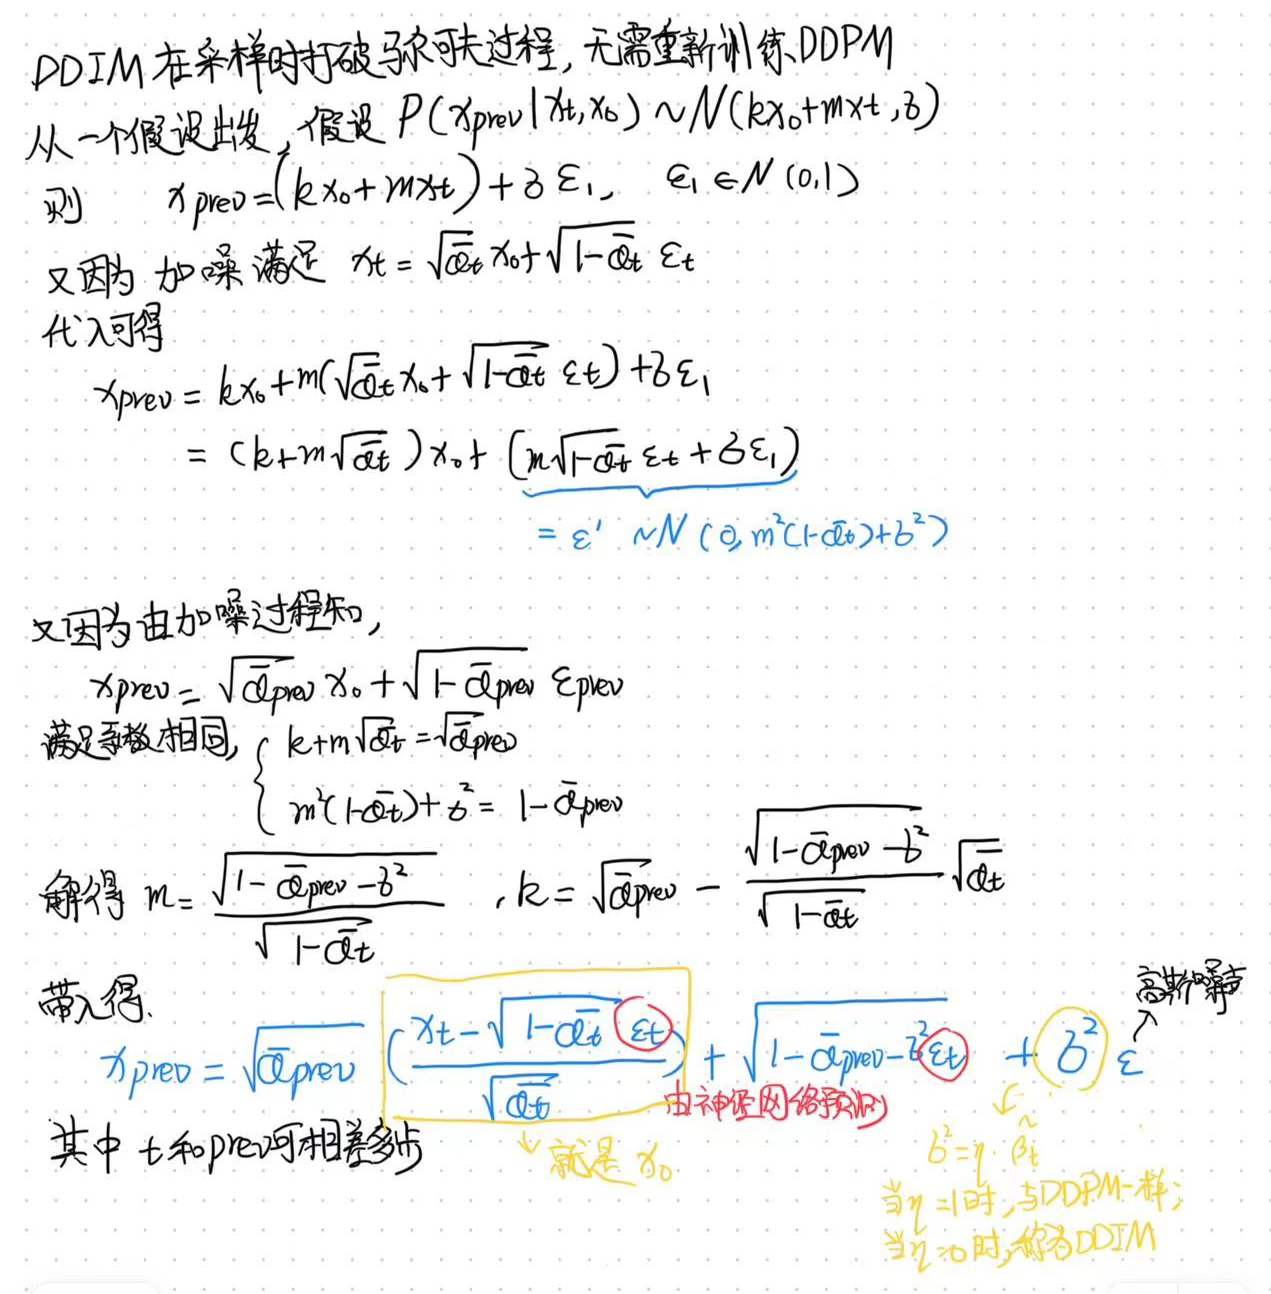 DDIM在采样时打破马尔可夫过程,无需重新训练DDPM
从一个假设出发,假设 P(x_prev|x_t,x_0) ~ N(kx_0+mx_t,σ)
则 x_prev=(kx_0+mx_t)+σε_1, ε_1∈N(0,1)
又因为 加噪满足 x_t=√ᾱ_t x_0+√(1-ᾱ_t) ε_t
代入可得
x_prev = kx_0+m(√ᾱ_t x_0+√(1-ᾱ_t) ε_t)+σε_1
= (k+m√ᾱ_t)x_0+(m√(1-ᾱ_t) ε_t+σε_1)
= ε' ~N(0,m²(1-ᾱ_t)+σ²)
又因为由加噪过程知,
x_prev= √ᾱ_prev x_0+√(1-ᾱ_prev) ε_prev
满足系数相同, { k+m√ᾱ_t=√ᾱ_prev
m²(1-ᾱ_t)+σ²= 1-ᾱ_prev
解得 m= √(1-ᾱ_prev-σ²)/√(1-ᾱ_t) , k= √ᾱ_prev - √(1-ᾱ_prev-σ²)/√(1-ᾱ_t) √ᾱ_t
带入得.
高斯噪声
x_prev = √ᾱ_prev ((x_t-√(1-ᾱ_t) ε_t)/√ᾱ_t) + √(1-ᾱ_prev-σ²) ε_t + σ² ε
由神经网络预测
其中 t和prev可相差多步
就是 x_0
σ²=η·β̃_t
当η=1时,与DDPM一样;
当η=0时,称为DDIM